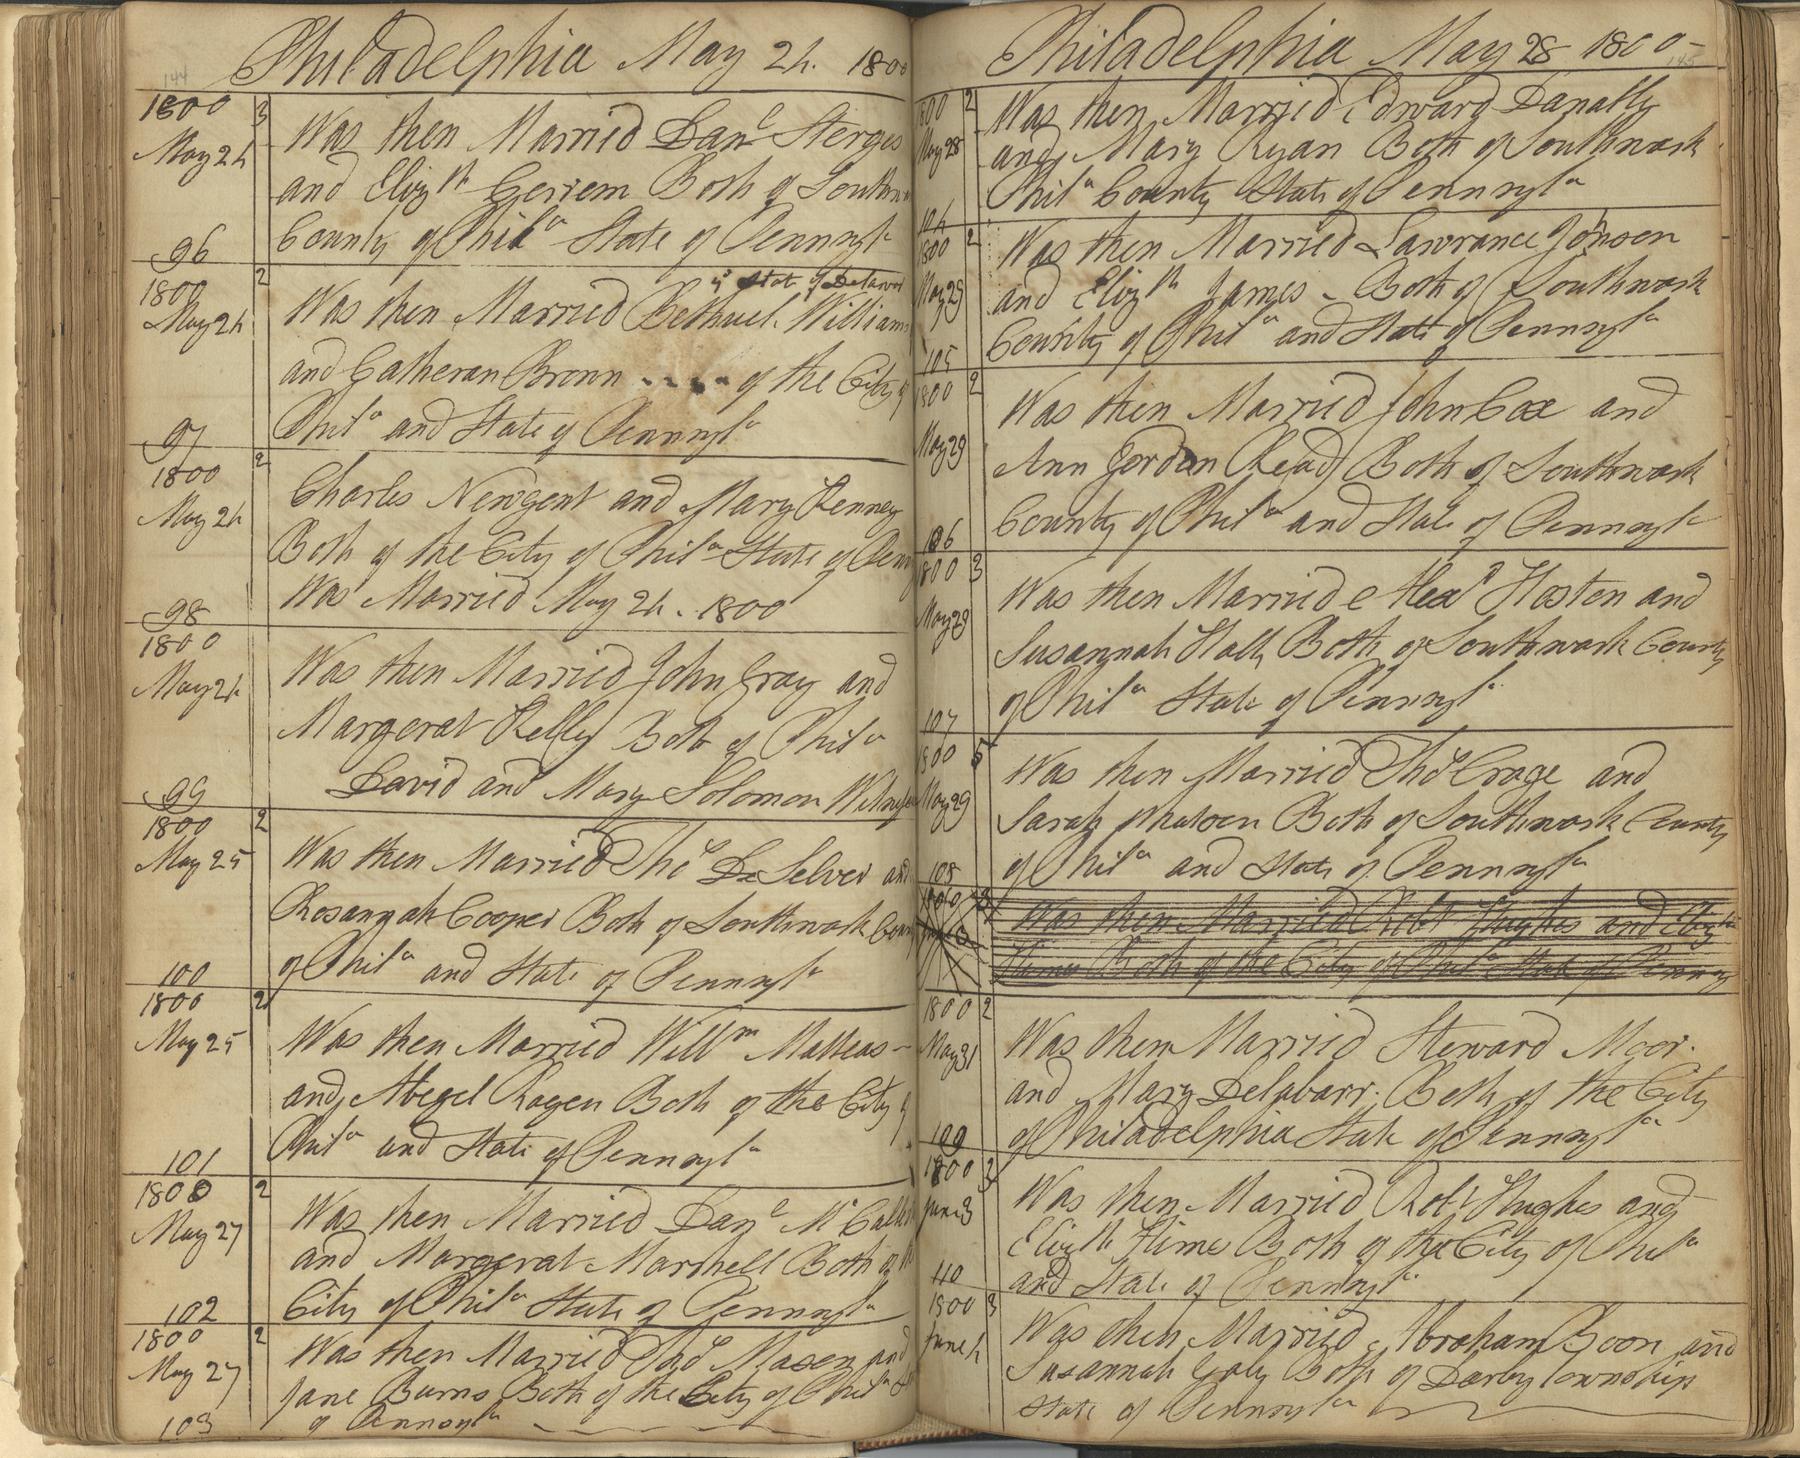 144
Philadelphia May 24. 1800
1800 3
Was then Married Danl Sterges
May 24
and Elizth Gerrem Both of Southw
County of Phila State of Pennsyla
96
1800 2
of State of Delawer
Was then Married Bethuel Williams
May 24
and Catheran Brown of the City of
Phila and State of Pennsyla
97
1800 2
Charles Newgent and Mary Kenney
May 24
Both of the City of Phila State of Penn
Was Married May 24. 1800
98
1800
Was then Married John Gray and
May 24
Margerat Kelley Both of Phila
David and Mary Solomon Witnesses
99
1800 2
Was then Married Thos DeSelver and
May 25
Rosannah Cooper Both of Southwark Coun
of Phila and State of Pennsyla
100
1800 2
Was then Married Willm Matteas
May 25
and Abegel Ragen Both of the City of
Phila and State of Pennsyla
101
1800 2
Was then Married Danl McCall
May 27
and Margerat Marshell Both of the
City of Phila State of Pennsyla
102
1800 2
Was then Married Maxen and
May 27
Jane Burns Both of the City of Phila
of Pennsyla
103
145
Philadelphia May 28 1800
1800 2
Was then Married Edward Danally
May 28
and Mary Ryan Both of Southwark
Phila County State of Pennsyla
104
1800 2
Was then Married Lawrance Jonson
May 29
and Elizth James Both of Southwark
County of Phila and State of Pennsyla
105
1800 2
Was then Married John Cox and
May 29
Ann Jordan Read Both of Southwark
County of Phila and State of Pennsyla
106
1800 3
Was then Married Alexr Hosten and
May 29
Susannah Hall Both of Southwark County
of Phila State of Pennsyla
107
1800 5
Was then Married Thos Crage and
May 29
Sarah Both of Southwark County
of Phila and State of Pennsyla
108
1800 3
Was then Married Robt Hughes and Elizth
June 3
Hime Both of the City of Phila State of Pennsy
1800 2
Was then Married Steward Moor.
May 31
and Mary Delabarr. Both of the City
of Philadelphia State of Pennsyla
109
1800 3
Was then Married Robt Hughes and
June 3
Elizth Hime Both of the City of Phila
and State of Pennsyla
110
1800 3
Was then Married Abraham Boon and
June 4
Susannah Both of Darby Township
State of Pennsyla